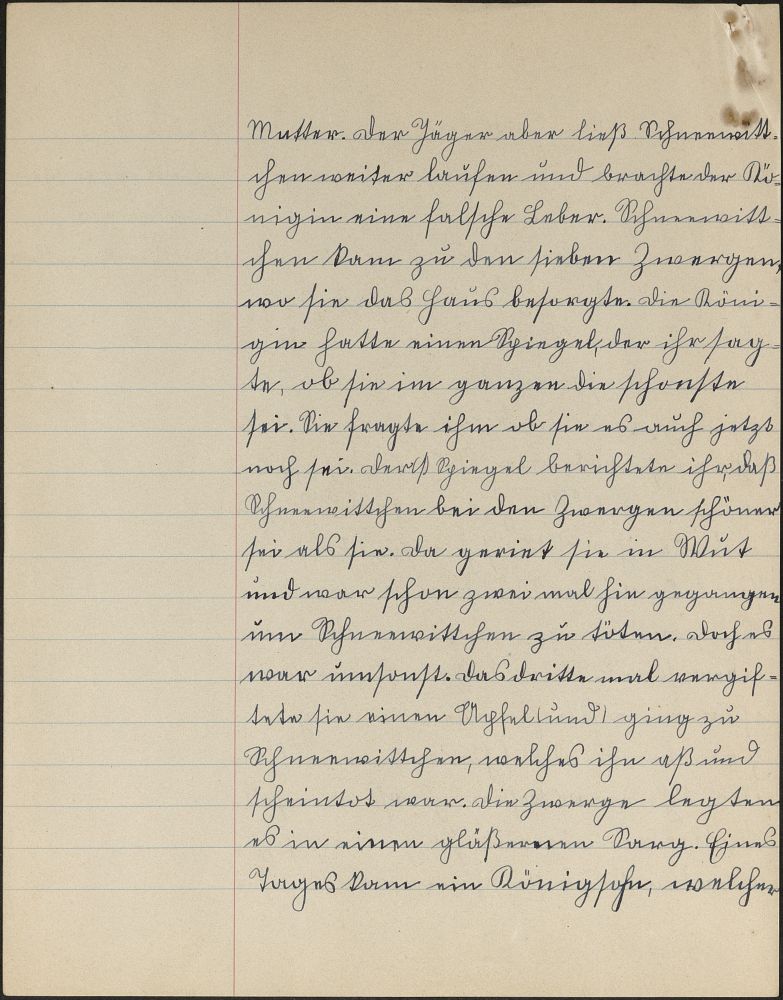 Mutter. Der Jäger aber ließ Schneewitt-
chen weiter laufen und brachte der Kö-
nigin eine falsche Leber. Schneewitt-
chen kam zu den sieben Zwergen,
wo sie das Haus besorgte. Die Köni-
gin hatte einen Spiegel, der ihr sag-
te, ob sie im ganzen die schonste
sei. Sie fragte ihm ob sie es auch jetzt
noch sei. Der Spiegel berichtete ihr, daß
Schneewittchen bei den Zwergen schöner
sei als sie. Da geriet sie in Wut
und war schon zwei mal hin gegangen
um Schneewittchen zu töten. Doch es
war umsonst. Das dritte mal vergif-
tete sie einen Apfel (und) ging zu
Schneewittchen, welches ihn aß und
scheintot war. Die Zwerge legten
es in einen gläßernen Sarg. Eines
Tages kam ein Königsohn, welcher